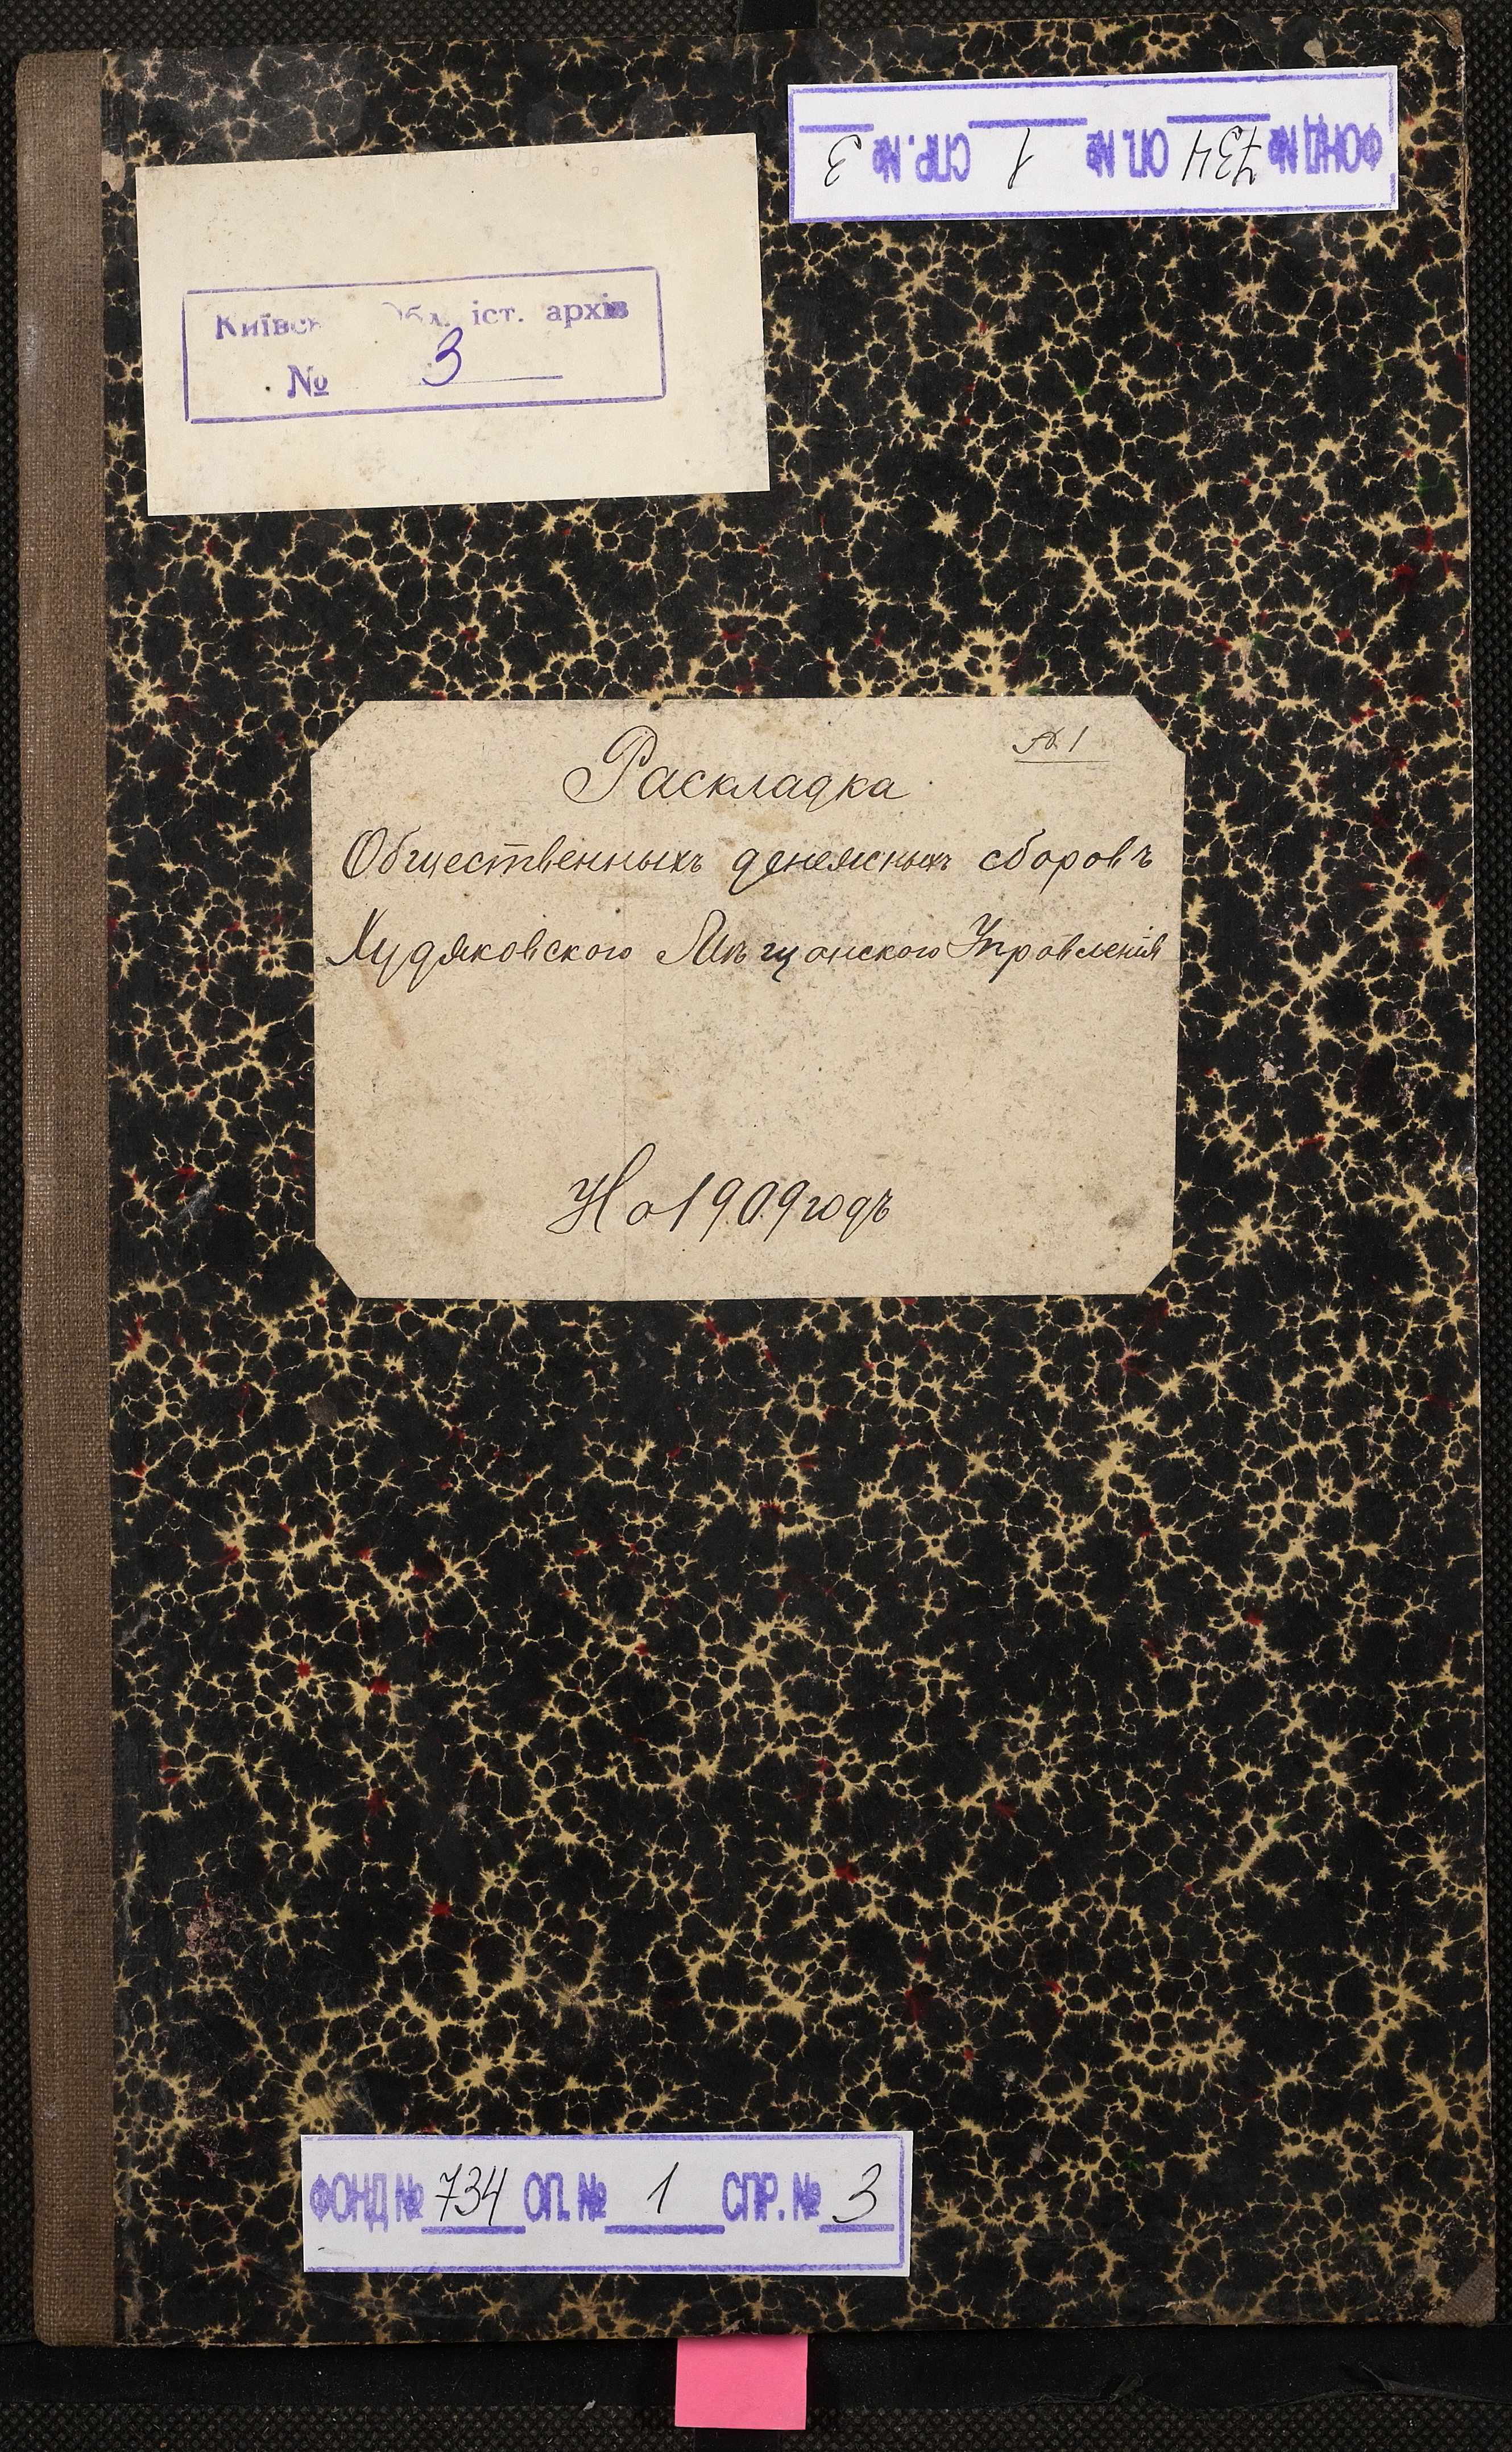 ФОНД № 734 ОП. № 1 СПР. № 3
Обл. іст. архів
№ 3
№ 1
Раскладка
Общественныхъ денежныхъ сборовъ
Худяковского Мѣщанского Управленія
На 1909 годъ
ФОНД № 734 ОП. № 1 СПР. № 3